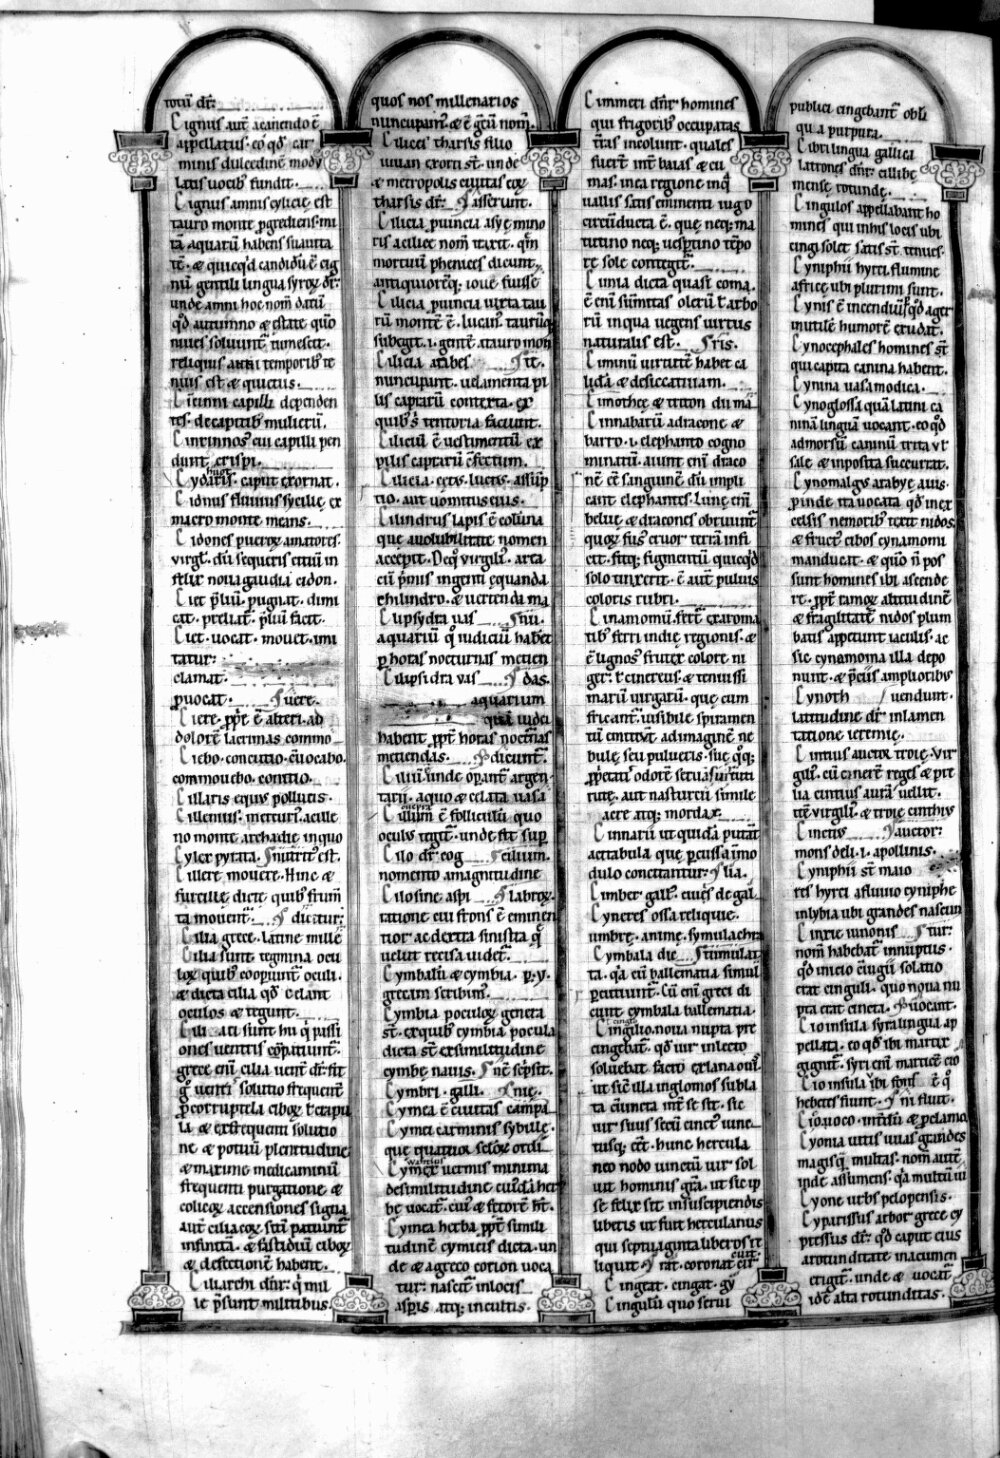 totū dr̄.
Cignus aut̄ a canendo ē
appellatus. eo qđ car
minis dulcedinē mody
latis uocib; fundit.
Cignus amnis cylicię est
tauro monte ꝓgrediens. mi
tā aquarū habens suauita
tē. & quicq̇d candidū ē cig
nū gentili lingua syroꝝ dr̄.
unde amni hoc nom̄ datū
qđ autūmno & estate quō
niues soluunt̄ tumescit.
reliquis anni temporib; te
nuis est & quietus.
Cicinni capilli dependen
tes. de capitib; mulierū.
Cincinnos cui capilli pen
dunt crispi.
Cydaris. caput exornat.
Cidnus fluuius sycilię ex
macro monte means.
Cidones pueroꝝ amatores.
virgl̄. dū sequeris clitiū in
felix noua gaudia cidon.
Ciet p̄liū. pugnat. dimi
cat. preliat̄. p̄liū facit.
Ciet. uocat. mouet. imi
tatur.
clamat.
ꝓuocat. uere.
Ciere. ꝓpr̄ ē alteri. ad
dolorē lacrimas commo
Ciebo. concitio. c̄uocabo.
commouebo. concitio.
Cillaris equus pollucis.
Cillenius. mercur;. a cille
no monte archadie in quo
Cylex pyrata. nutrit; est.
Cillere mouere. Hinc &
furcille dicte quib; frum̄
ta mouent̄. dicatur.
Cilia grece. latine mille
Cilia sunt tegmina ocu
loꝝ quib; coopiunt̄ oculi.
& dicta cilia qđ celant
oculos & tegunt.
Ciliaci sunt hii q̇ passi
ones uentris cōpatiunt̄.
grece eni cilia uent̄ dr̄. fit
g̊ uent̄ solutio frequent̄
ꝑ corruptela ciboꝝ ł crapu
la & ex frequenti solutio
ne & potuū plenitudine
& maxime medicaminū
frequenti purgatione &
colicoꝝ accensiones signa
aut̄ ciliacoꝝ sc̄m patiunt̄
infinitā. & fastidiū ciboꝝ
& defectionē habent.
Ciliarchi dn̄r. q̇ mil
le p̄sunt militibus.
quos nos millenarios
nuncupam;. & ē gr̄ū nom̄.
Cilices tharsis filio
iauan exorti st̄. unde
& metropolis ciuitas eoꝝ
tharsis dr̄. asserunt.
Cilicia ꝓuincia asyę mino
ris a cilice nom̄ traxit. qm̄
mortuū phenicis dicunt.
antiquioreq̇. ioue fuisse
Cilicia ꝓuincia iuxta tau
rū montē ē. lucan; taurūq̇
subegit. i. gentē a tauro mon
Cilicia arabes te.
nuncupant. uelamenta pi
lis capraruū contexta. ex
quib; s; tentoria faciunt.
Ciliciū ē uestimentū ex
pilis capraruū c̄fectum.
Cilindrus lapis ē colūna
quę a uolubilitate nomen
accepit. De q̊ virgili;. area
cū p̄mis ingenti ęquanda
chilindro. & uertenda ma
Clipsydra uas nu.
aquariū q̊ iudiciū habet
ꝑ horas nocturnas metien
Clipsidra uas das.
aquarium
quā iudei
habent ꝓpt̄ horas noct̄nas
metiendas. dicunt̄.
Ciliū unde opant̄ argen
tarii. a quo & celata uasa
Cilium ē folliculū quo
oculus tegit̄. unde fit sup
Cilo dr̄. cog ciliium.
nomento a magnitudine
Cilosine aspi labroꝝ.
ratione cui frons ē eminen
tior ac dextra sinistra q̇
uelut recisa uidet̄.
Cymbalū & cymbia. ꝑ. y.
grecam scribim;.
Cymbia poculoꝝ genera
st̄. ex quib; cymbia pocula
dicta st̄ ex similitudine
cymbę nauis.
Cymbri. galli. nię.
Cymea ē ciuitas campa
Cymei carminis sybille.
que quattuor seloꝝ ordi
Cymex uermis minima
de similitudine cui;dā her
bę uocat̄. cui; & fetorē ht̄.
Cymea herba ꝓpt̄ simili
tudinē cymicis dicta. un
de & a greco corion uoca
tur. nascit̄ in locis
asꝑis atq; incultis.
Cimmeri dn̄r homines
qui frigorib; occupatas
t̄ras incolunt. quales
fuer̄ int̄ baias & cu
mas. in ea regione in q̇
uallis satis eminenti iugo
circūducta ē. que neq; ma
tutino neq; uesꝑtino tēpo
re sole contegit̄.
Cima dicta quasi coma.
ē enī sūmitas olerū ł arbo
rū in qua uegens uirtus
naturalis est. ris.
Ciminū uirtutē habet ca
lidā & desiccatiuam.
Cimothee & triton du ma
Cinnabarū a dracone &
barro. i. elephanto cogno
minatū. aiunt enī draco
nē c̄e sanguinē dū impli
cant elephantes. Lunę enī
beluę & dracones obruunt̄
quoꝝ fus; cruor terrā infi
cit. fitq; figmentū quicq̇d
solo tinxerit. ē aut̄ puluis
coloris rubri.
Cinamomū. fert̄ ex aroma
tib; ferri indię regionis. &
ē lignos; frutex colore ni
ger. ł cinereus. & tenuissi
marū uirgarū. que cum
fricant̄. uisibile spiramen
tū emittit̄ ad imaginē ne
bulę seu pulueris. sue q̊q;
rutę. aut nasturcii simile
acre atq; mordax.
Cinnarii ut quidā putant
acitabula quę ꝑcussa imo
dulo concitantur. lia.
Cimber. gall;. ciuis de gal
Cyneres ossa reliquie.
umbrę. animę. symulachra
Cymbala dic
ta. q̇a cū ballematia simul
ꝑcutiunt̄. Cū enī greci di
cunt cymbala ballematia.
Cingulo noua nupta pre
cingebat̄. qđ uir in lecto
soluebat facto ex lana ouis.
ut sic illa in glomos subla
ta c̄iuncta int̄ se sit. sic
uir suus secū cinct; iunc
tusq; ēet. hunc hercula
neo nodo iunctū uir sol
uit hominis gr̄a. ut sic ip
se felix sit in suscipiendis
liberis ut fuit herculanus
qui septuaginta liberos re
liquit. rat. coronat cir
Cingtat. cingat. gy
Cingulū quo serui
publici cingebant̄ obli
qu a purpura.
Cibri lingua gallica
latrones dn̄r. cilibę
mensę rotunde.
Cingulos appellabant ho
mines qui in his locis ubi
cingi solet satis st̄ tenues.
Cyniphii hyrci flumine
africe ubi plurimi sunt.
Cynis ē incendiū. qđ ager
inutilē humorē exudat.
Cynocephales homines st̄
qui capita canina habent.
Cynina uasa modica.
Cynoglossa quā latini ca
ninā linguā uocant. eo qđ
ad morsum caninū trita ut̄
sale & inposita succurrat.
Cynomalgus arabyę auis.
ꝓinde ita uocata qđ in ex
celsis nemorib; texit nidos
& fruct; cibos cynamomi
manducat. & quō ñ pos
sunt homines ibi ascende
re. ꝓpt̄ ramoꝝ altitudinē
& fragilitatē nidos plum
batis appetunt iaculis. ac
sic cynamoma illa depo
nunt. & p̄ciis amplioribus
Cynoth uendunt.
latitudine dr̄ in lamen
tatione ieremię.
Cintius auctor troię. Vir
gil;. cū cineret̄ reges & pre
lia cintius aurā uellit.
itē virgili;. & troię cinthius
Cinetus auctor.
mons deli. i. apollinis.
Cyniphii st̄ maio
res hyrci a fluuio cyniphe
in lybia ubi grandes nascun
Cinxie iunonis tur.
nom̄ habebat̄ in nuptus.
qđ inicio c̄iugii solatio
erat cinguli. quo noua nu
pta erat cincta. uocant.
Cio insula syra lingua ap
pellata. eo qđ ibi martix
gignit̄. syri enī martice cio
Cio insula ubi fons ē q̊
hebetes fiunt. fluit.
Cyonia uitis uuas grandes
magisq; multas. nom̄ aut̄
inde assumens. q̇a multū ui
Cyone urbs pelopensis.
Cyparissus arbor grece cy
pressus dr̄. qđ caput eius
a rotunditate in acumen
erigit̄. unde & uocat̄
id ē alta rotunditas.